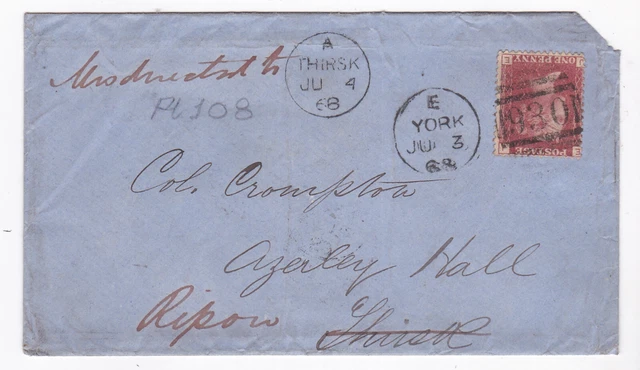 Misdirected to
A
THIRSK
JU 4
68
Pl 108
E
YORK
JU 3
68
ONE PENNY
930
POSTAGE
Col. Crompton
Azerley Hall
Ripon
Thirsk